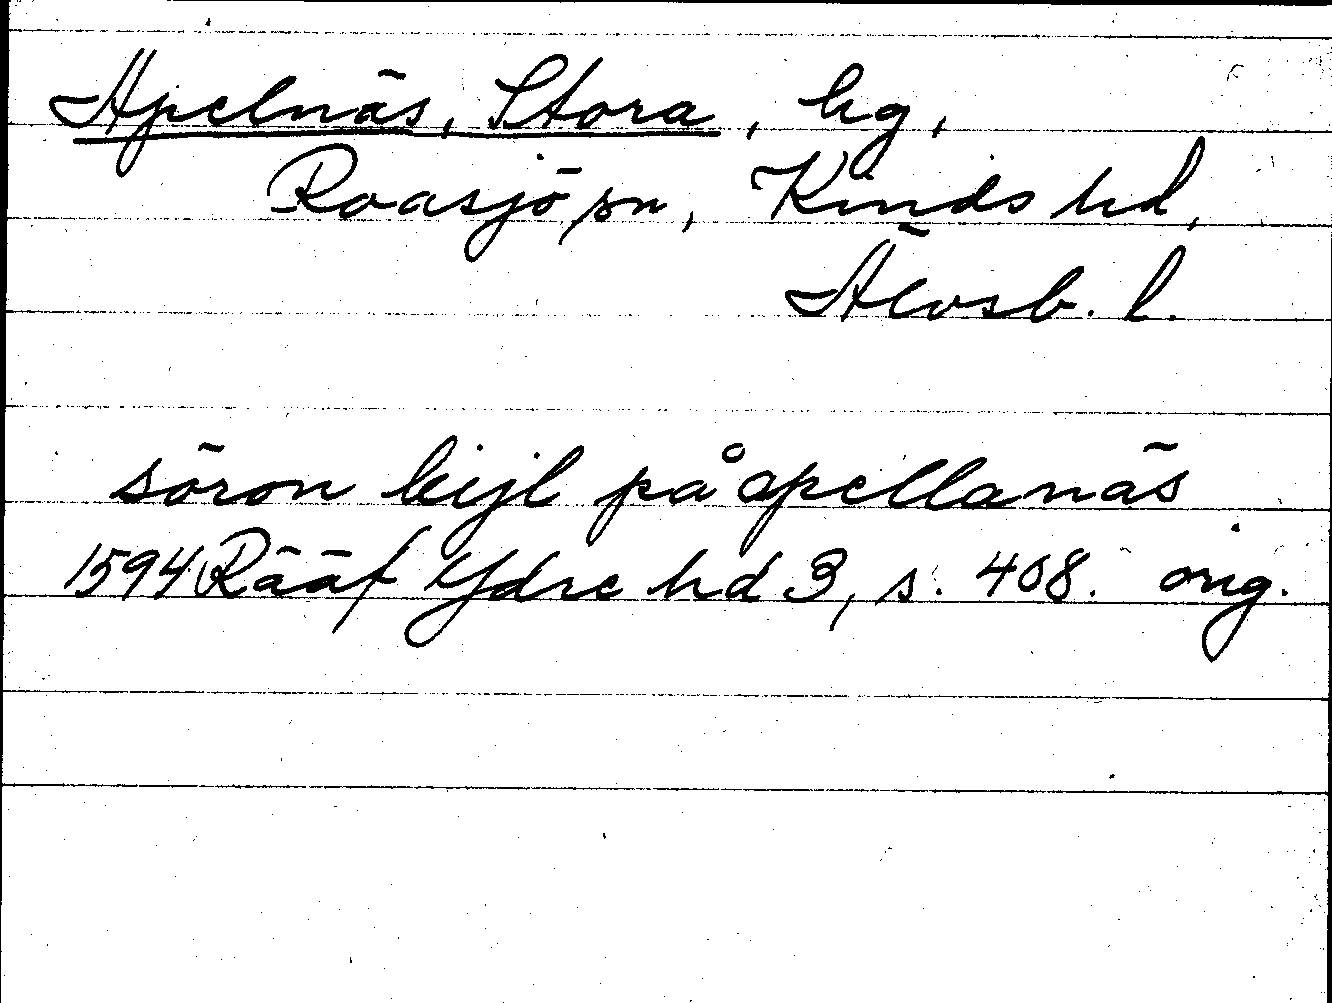 Apelnäs, Stora, hg,
Roasjö sn, Kinds hd,
Älvsb. l.
söron kijl på apellanäs
1594 Rääf Ydre hd 3, s. 408. orig.